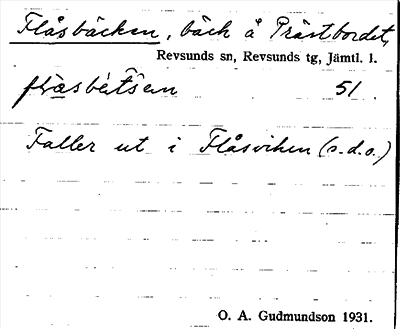 Flåsbäcken, bäck å Prästbordet,
Revsunds sn, Revsunds tg, Jämtl. l.
51
Faller ut i Flåsviken (s.d.o.)
O. A. Gudmundson 1931.